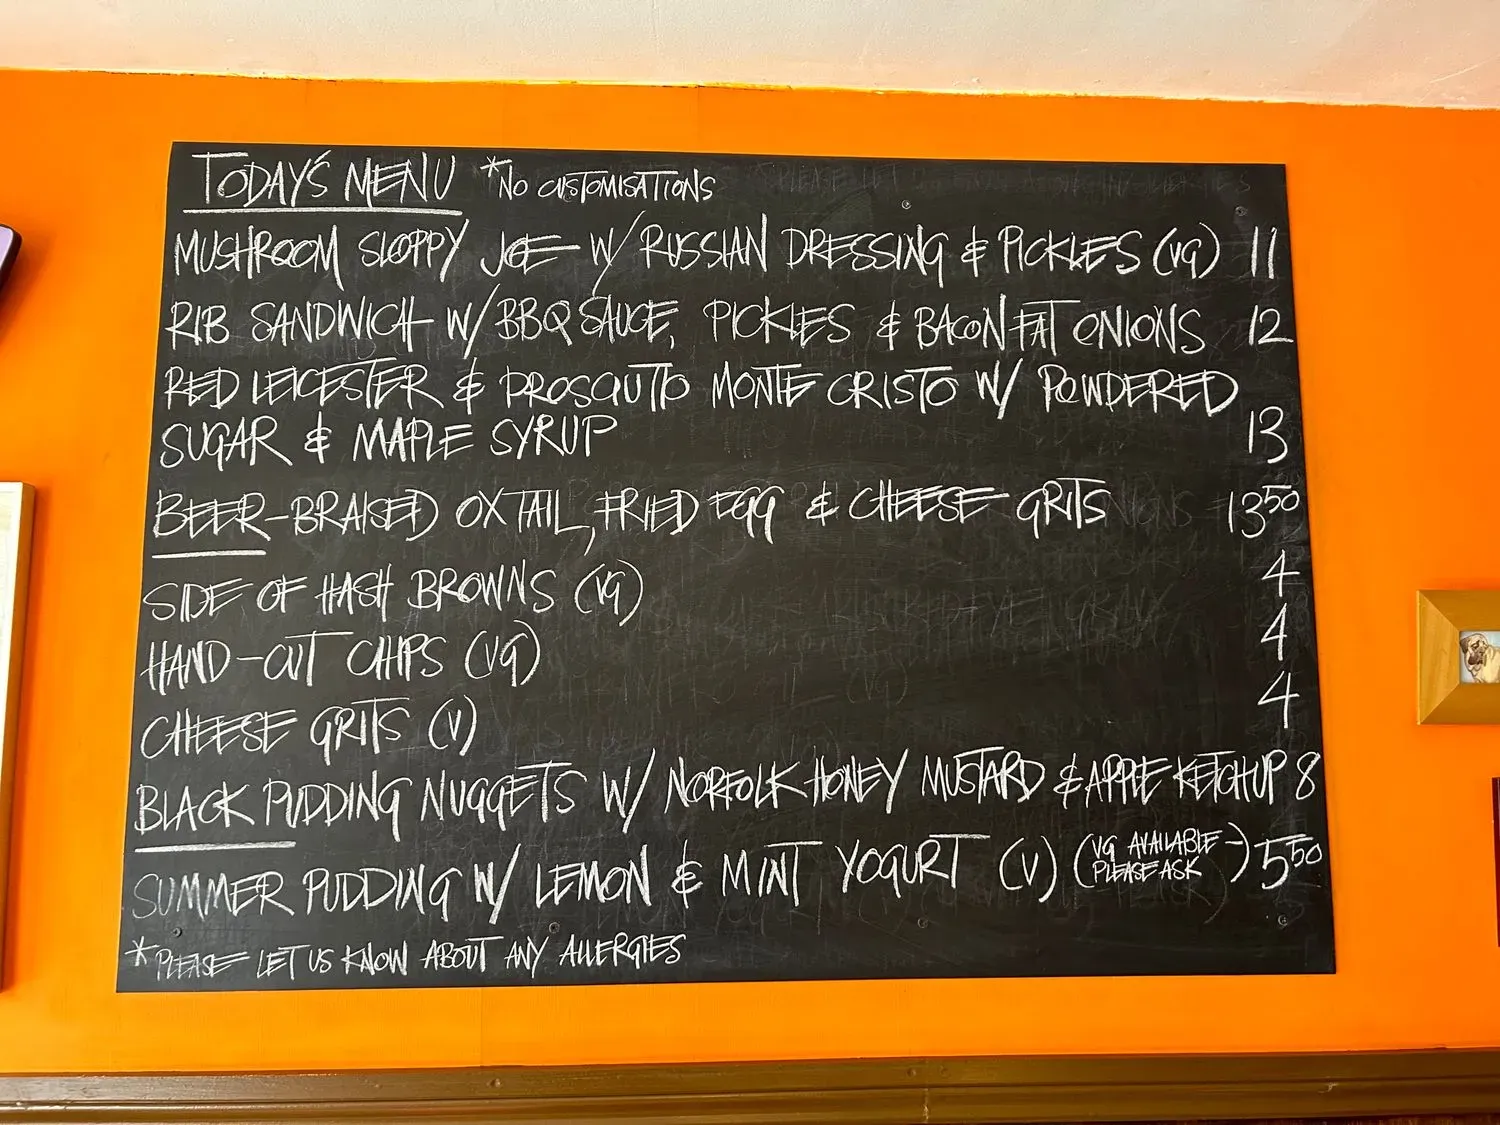 TODAY'S MENU *NO CUSTOMISATIONS
MUSHROOM SLOPPY JOE W/ RUSSIAN DRESSING & PICKLES (VG) 11
RIB SANDWICH W/ BBQ SAUCE, PICKLES & BACON FAT ONIONS 12
RED LEICESTER & PROSCIUTTO MONTE CRISTO W/ POWDERED
SUGAR & MAPLE SYRUP 13
BEER-BRAISED OXTAIL, FRIED EGG & CHEESE GRITS 13 50
SIDE OF HASH BROWNS (VG) 4
HAND-CUT CHIPS (VG) 4
CHEESE GRITS (V) 4
BLACK PUDDING NUGGETS W/ NORFOLK HONEY MUSTARD & APPLE KETCHUP 8
SUMMER PUDDING W/ LEMON & MINT YOGURT (V) (VG AVAILABLE - PLEASE ASK) 5 50
*PLEASE LET US KNOW ABOUT ANY ALLERGIES